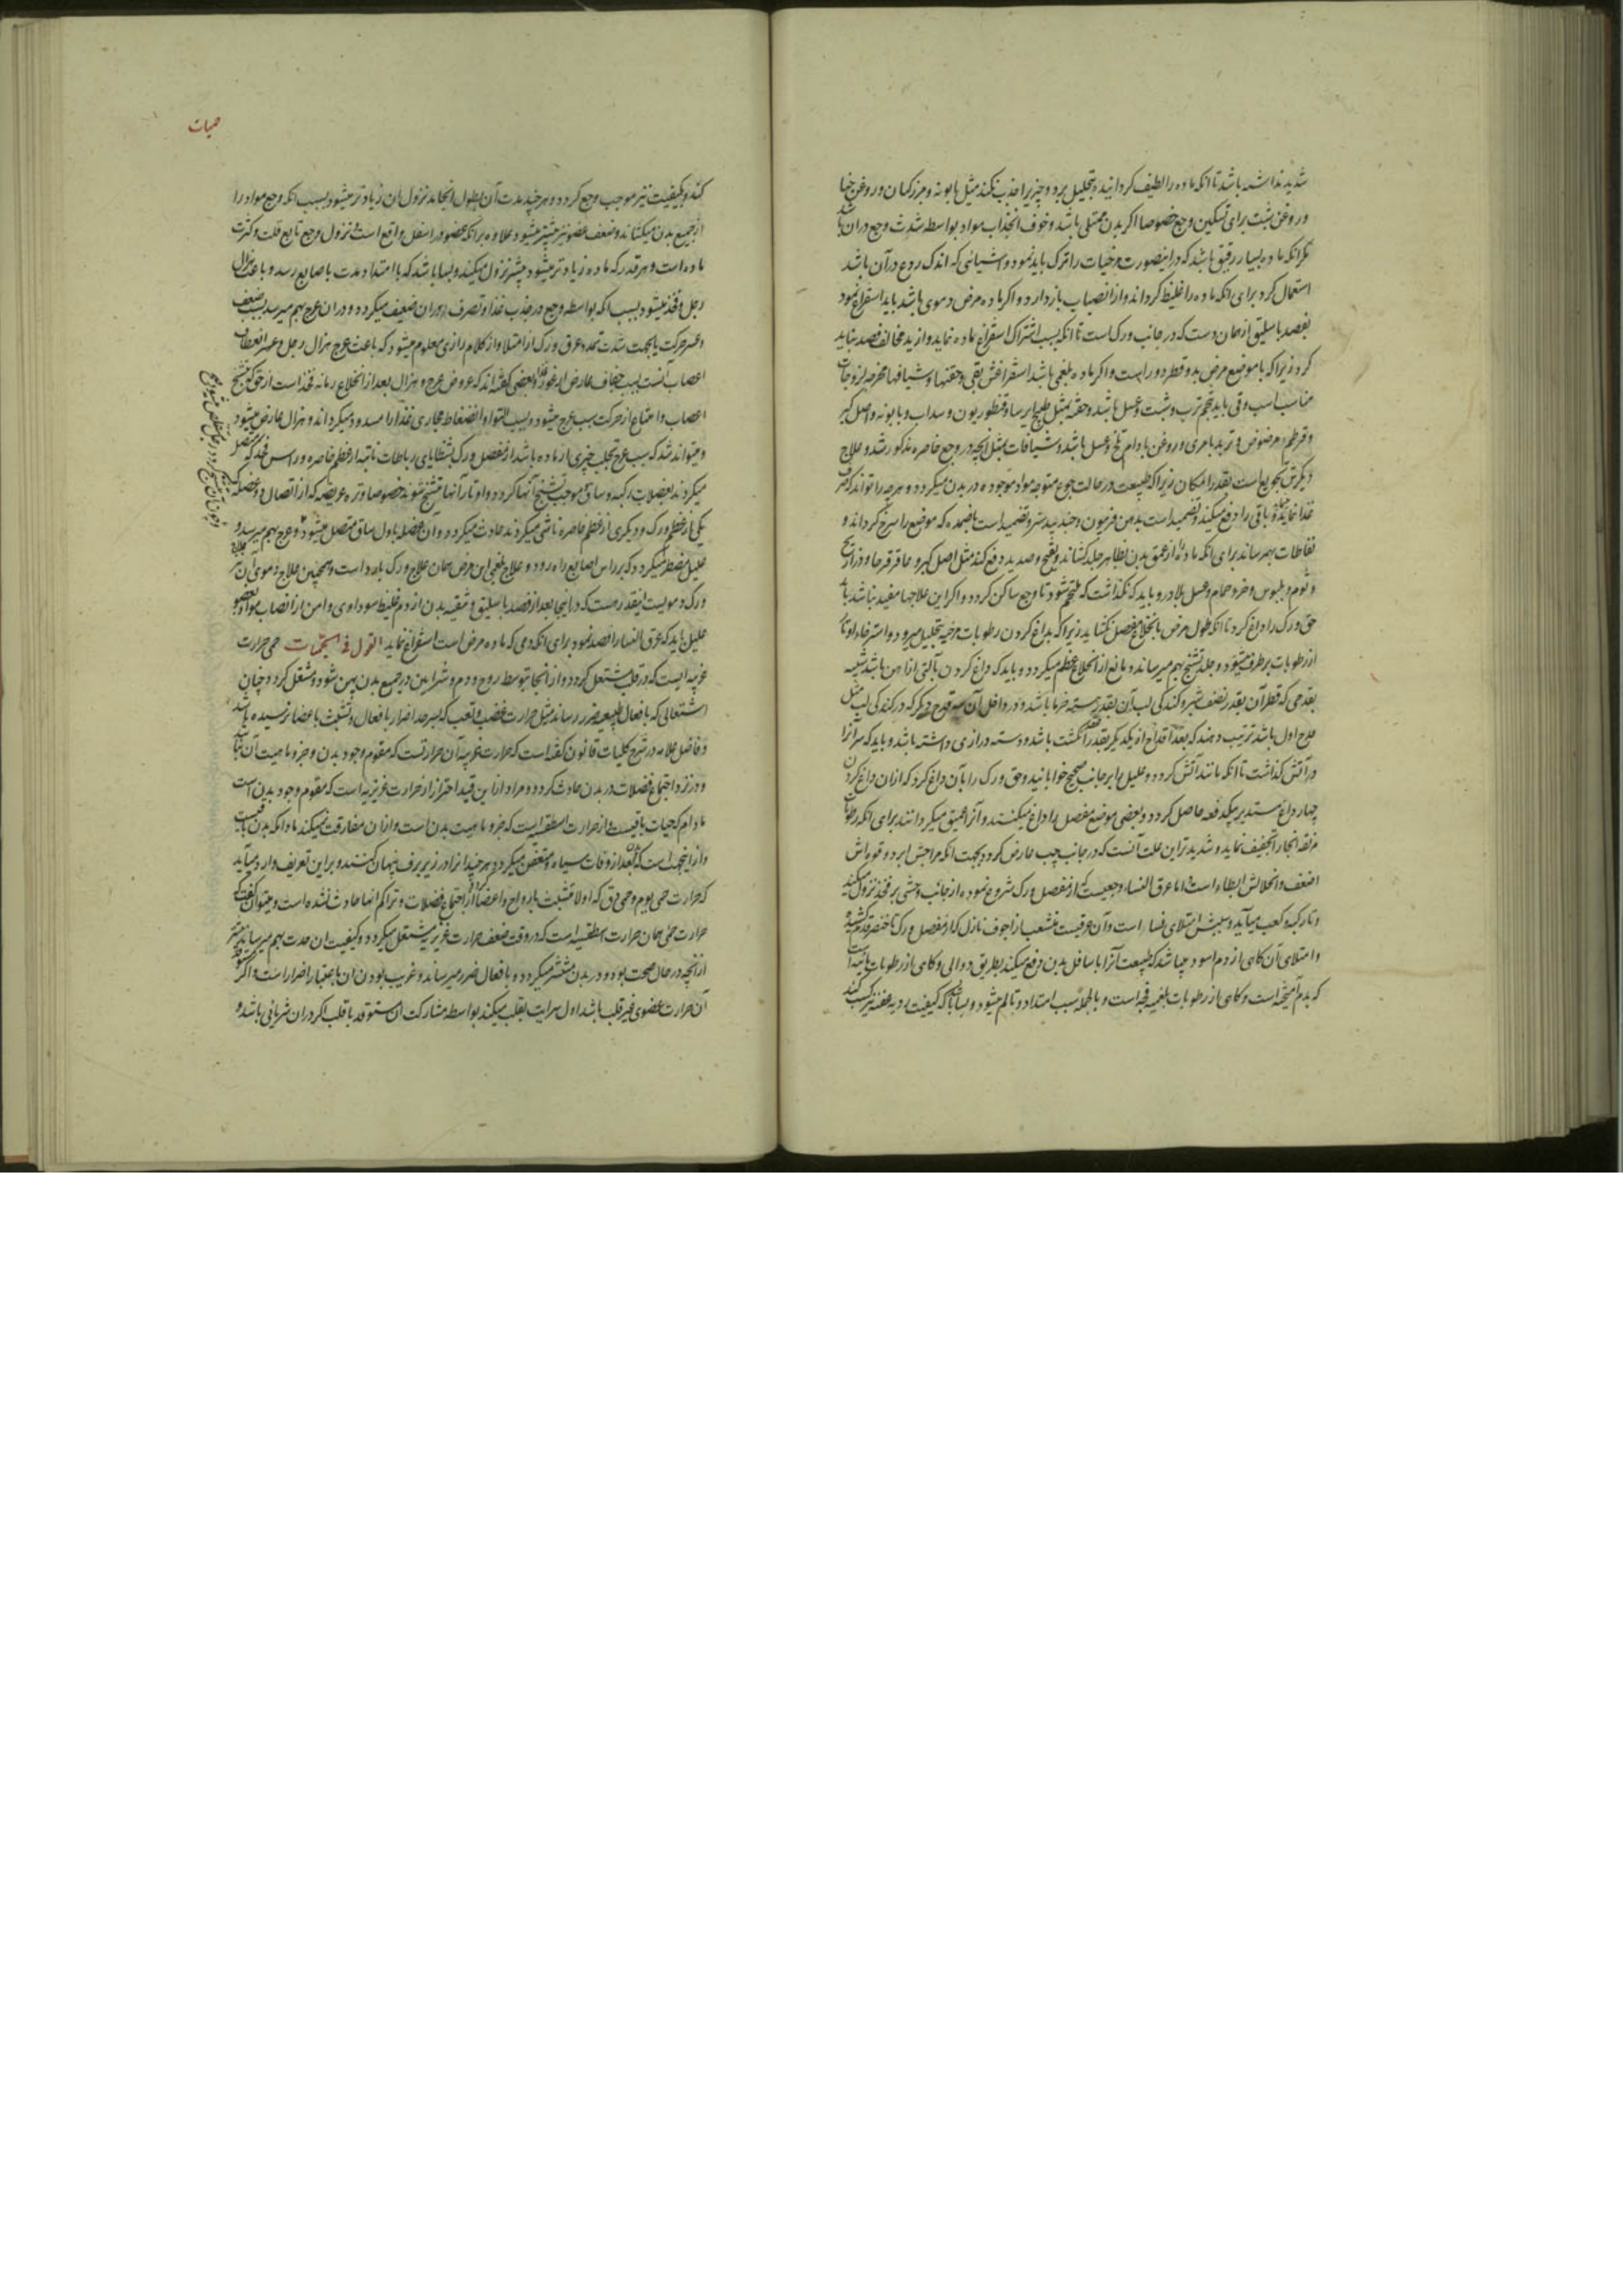 شدید نداشته باشد تا انکه ماده را لطیف کردانیده بتحلیل برد و چیزیرا جذب نکند مثل بابونه و بزرکتان و روغن حنا
و روغن شبت برای تسکین وجع خصوصا اکر بدن ممتلی باشد و خوف انجذاب مواد بواسطه شدت وجع دران باشد
مکر انکه ماده بسیار رقیق باشد که درینصورت مرخیات را ترک باید نمود و اشیائی که اندک ردع در آن باشد
استعمال کرد برای انکه ماده را غلیظ کرداند و از انصباب باز دارد و اکر ماده مرض دموی باشد باید استفراغ نمود
بفصد باسلیق از همان دست که در جانب ورک است تا انکه بسبب اشتراک استفراغ ماده نماید و از ید مخالف فصد نباید
کرد زیرا که با موضع مرض بدو قطر دور است و اکر ماده بلغمی باشد استفراغش بقی و حقنها و شیافها مخرجه لزوجات
مناسب است و قی باید بتخم ترب و شبت و عسل باشد و حقنه بمثل طبیخ ایرسا و قنطوریون و سداب و بابونه و اصل کبر
و قرطم مرضوض و تربد با مری و روغن بادام تلخ و عسل باشد و شیافات بمثل انچه در وجع خاصره مذکور شد و علاج
دیکرش تجویع است بقدر امکان زیرا که طبیعت در حالت جوع متوجه مواد موجوده در بدن میکردد و هرچه را تواند که صرف
غذا نماید و باقی را دفع میکند و تضمید است بدهن فربیون و جندبیدستر و تضمید است باضمده که موضع را سرخ کرداند و
نفاطات بهم رساند برای انکه ماده را از عمق بدن بظاهر جلد کشاند و بقیح و صدید دفع کند مثل اصل کبر و عاقرقرحا و ذراریح
و ثوم و بلبوس و خرو حمام و عسل بلادر و باید که نکذاشت که ملتحم شود تا وجع ساکن کردد و اکر این علاجها مفید نباشد باید
حق ورک را داغ کرد تا انکه طول مرض بانخلاع مفصل نکشاید زیرا که بداغ کردن رطوبات مرخیه بتحلیل میرود و استرخاء اوتار
از رطوبات برطرف میشود و جلد تشنج بهم میرساند و مانع از انخلاع عظم میکردد و باید که داغ کردن بآلتی از آهن باشد شبیه
بقدحی که قطر آن بقدر نصف شبر و کندکی لب آن بقدر هسته خرما باشد و در داخل آن سه قدح دیکر که در کندکی لب مثل
قدح اول باشد ترتیب دهند که بعد اقداح از یکدیکر بقدر انکشت باشد و دسته درازی داشته باشد و باید که سر انرا
در آتش کذاشت تا انکه مانند آتش کردد و علیل را بر جانب صحیح خوابانید و حق ورک را بآن داغ کرد که ازان داغ کردن
چهار داغ مستدیر بیکدفعه حاصل کردد و بعضی موضع مفصل را داغ میکنند و آنرا عمیق میکردانند برای انکه رطوبات
مزلقه انجا را تجفیف نماید و شدیدترین علت آنست که در جانب چپ عارض کردد بجهت انکه مزاجش ابرد و قوه اش
اضعف و انحلالش ابطاء است اما عرق النسا وجعیست که از مفصل ورک شروع نموده از جانب وحشی بر فخذ نزول میکند
و تا رکبه و کعب میآید و سببش امتلای نساء است و آن عرقیست منشعب از اجوف نازل که از مفصل ورک تا خنصر قدم کشیده
و امتلای آن کاهی از دم اسود میباشد که طبیعت آنرا باسافل بدن دفع میکند بطریق دوالی و کاهی از رطوبات مائیه است
که بدم آمیخته است و کاهی از رطوبات بلغمیه فجه است و بالجمله سبب امتداد و تالم میشود و بسا باشد که کیفیت ردیه عفنه نیز کسب کند
حمیات
کند و بکیفیت نیز موجب وجع کردد و هر چند مدت آن بطول انجامد نزول ان زیادتر میشود بسبب انکه وجع مواد را
از جمیع بدن میکشاند و ضعف عضو نیز بیشتر میشود علاوه بر انکه عضو در اسفل واقع است نزول وجع تابع قلت و کثرت
ماده است و هر قدر که ماده زیادتر میشود بیشتر نزول میکند و بسا باشد که با امتداد مدت باصابع رسد و باعث هزال
رجل و فخذ میشود بسبب انکه بواسطه وجع در جذب غذا و تصرف دران ضعیف میکردد و دران عرج بهم میرسد بسبب ضعف
و عسر حرکت یا بجهت شدت تمدد عرق ورک از امتلا و از کلام رازی معلوم میشود که باعث عرج هزال رجل و عسر انعطاف
اعصاب آنست بسبب جفاف عارض ازغور و بعضی کفته اند که عروض عرج و هزال بعد از انخلاع رمانه فخذ است از حق که تشنج
اعصاب و امتناع از حرکت سبب عرج میشود و بسبب التواء و انضغاط مجاری غذا را مسدود میکرداند و هزال عارض میشود
و میتواند شد که سبب عرج تجلب چیزی از ماده باشد از مفصل ورک بشظایای رباطات ناتیه از عظم خاصره و راس فخذ که متصل
میکردند بعضلات رکبه و ساق و موجب تشنج آنها کردد و اوتار آنها متشنج شوند خصوصا وتره عریضه که از اتصال دو عضله که
یکی از عظم ورک و دیکری از عظم خاصره ناشی میکردند حادث میکردد و ان عضله باول ساق متصل میشود و عرج بهم میرسد و
علیل مضطر میکردد که بر راس اصابع راه رود و علاج بلغمی این مرض همان علاج ورک بارد است و همچنین علاج دموی آن علاج
ورک دمویست اینقدر هست که در اینجا بعد از فصد باسلیق و تنقیه بدن از دم غلیظ سوداوی و امن از انصباب مواد بعضو
علیل باید که عرق النسا را فصد نمود برای انکه دمی که ماده مرض است استفراغ نماید القول فی الحمیات حمی حرارت
غریبه ایست که در قلب مشتعل کردد و از انجا بتوسط روح و دم و شرایین در جمیع بدن پهن شود و مشتعل کردد چنان
اشتعالی که بافعال طبیعیه ضرر رساند مثل حرارت غضب و تعب که بسرحد اضرار بافعال و تشبث باعضا نرسیده باشد
و فاضل علامه در شرح کلیات قانون کفته است که حرارت غریبه آن حرارتست که مقوم وجود بدن و جزو ماهیت آن نباشد
و در نزد اجتماع فضلات در بدن حادث کردد و مراد ازین قید احتراز از حرارت غریزیه است که مقوم وجود بدن است
مادام که حیات باقیست و از حرارت اسطقسیه است که جزو ماهیت بدن است و ازان مفارقت نمیکند مادامکه بدن باقیست
و از اینجهت است که بعد از وفات سیاه و متعفن میکردد هر چند انرا در زیر برف پنهان کنند و براین تعریف وارد میآید
که حرارت حمی یوم و حمی دق که اولا متشبث بارواح و اعضا از اجتماع فضلات و تراکم انها حادث نشده است و میتوان کفت که
حرارت حمی همان حرارت اسطقسیه است که در وقت ضعف حرارت غریزیه مشتعل میکردد و کیفیت ان حدت بهم میرساند بیشتر
از انچه در حال صحت بوده و در بدن منتشر میکردد و بافعال ضرر میرساند و غریب بودن ان باعتبار اضرار است و اکر
آن حرارت عضوی غیر قلب باشد اول سرایت بقلب میکند بواسطه مشارکت ان متوقد با قلب اکر دران شریانی باشد و